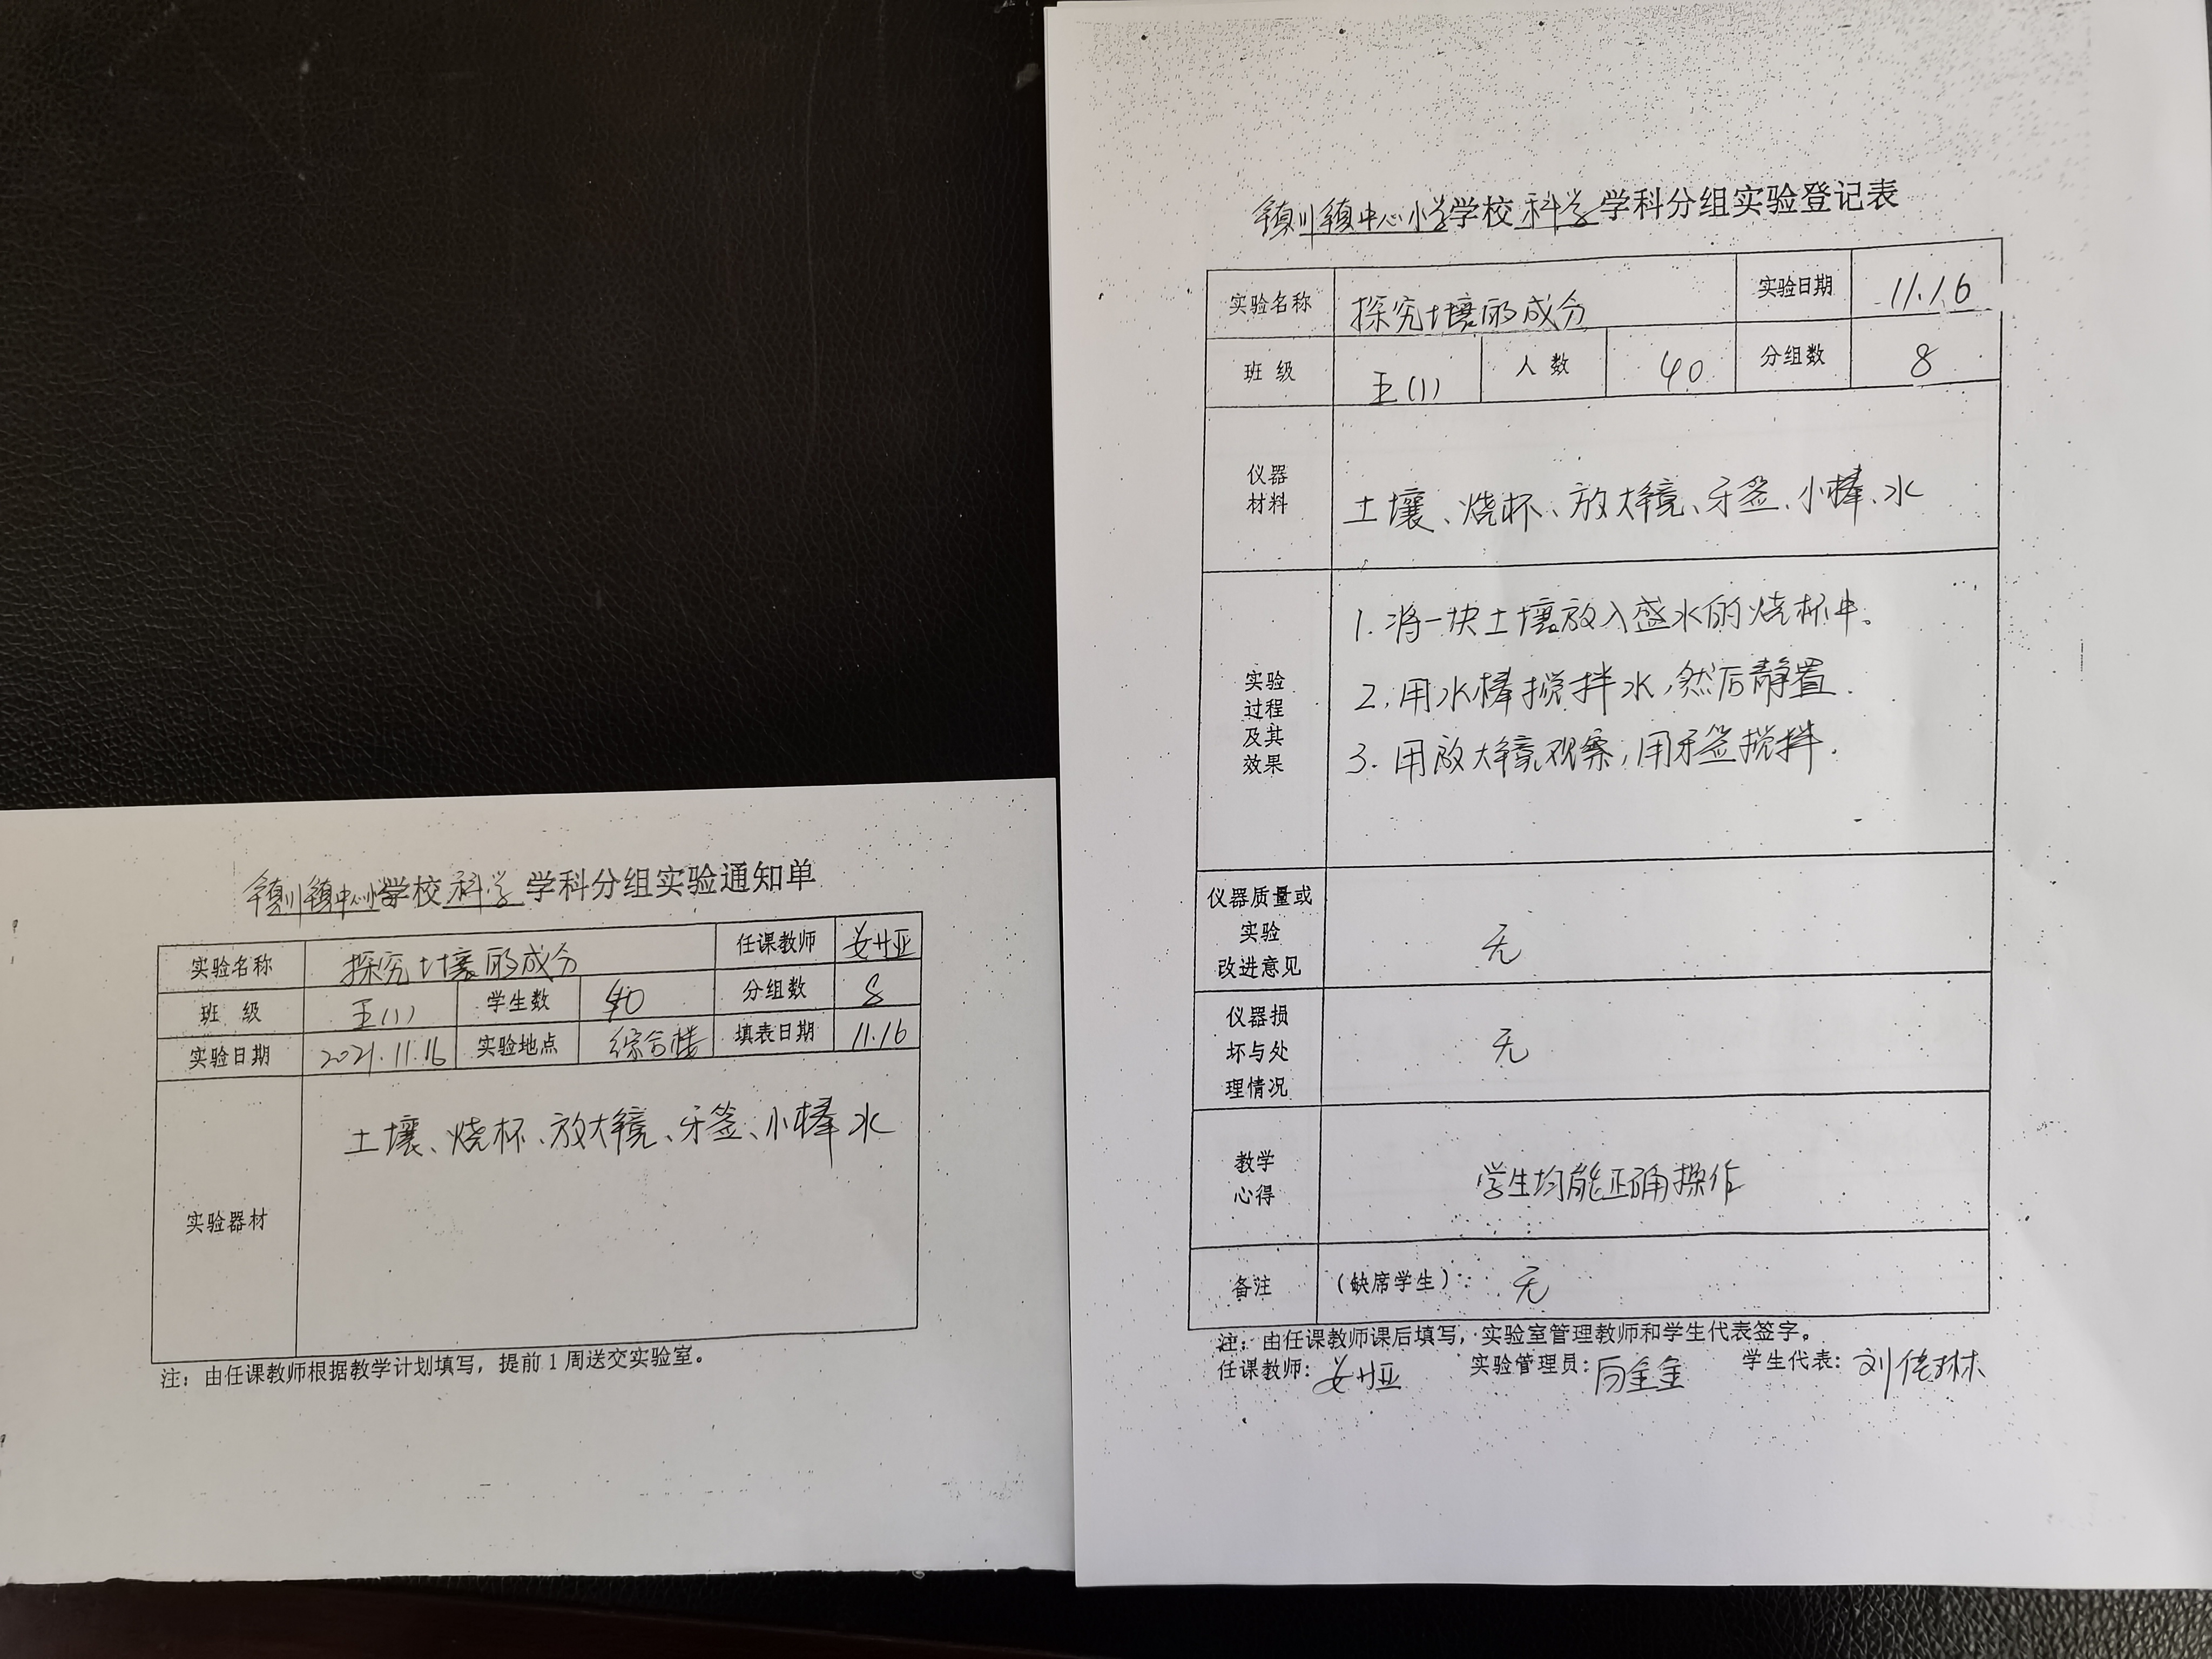 镇川镇中心小学学校科学学科分组实验通知单
实验名称 探究土壤的成分 任课教师
班 级 五(1) 学生数 40 分组数 8
实验日期 2021.11.16 实验地点 综合楼 填表日期 11.16
实验器材 土壤、烧杯、放大镜、牙签、小棒 水
注：由任课教师根据教学计划填写，提前1周送交实验室。
镇川镇中心小学学校科学学科分组实验登记表
实验名称 探究土壤的成分 实验日期 11.16
班 级 五(1) 人 数 40 分组数 8
仪器
材料
土壤、烧杯、放大镜、牙签、小棒、水
实验
过程
及其
效果
1. 将一块土壤放入盛水的烧杯中。
2. 用水棒搅拌水，然后静置.
3. 用放大镜观察，用牙签搅拌.
仪器质量或
实验
改进意见
无
仪器损
坏与处
理情况
无
教学
心得
学生均能正确操作
备注 （缺席学生）： 无
注：由任课教师课后填写，实验室管理教师和学生代表签字。
任课教师： 实验管理员： 学生代表：刘佳琳